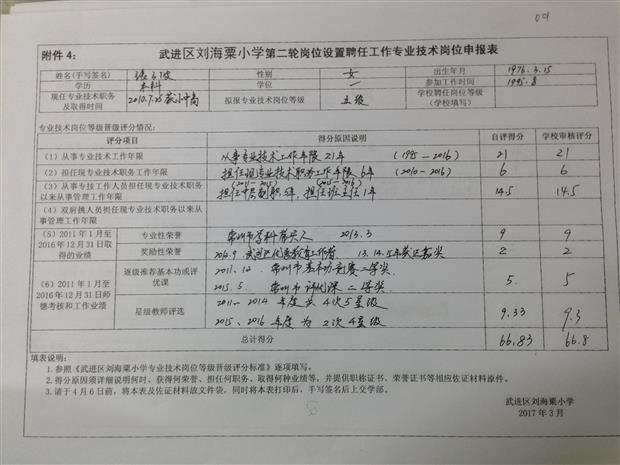 附件4： 武进区刘海粟小学第二轮岗位设置聘任工作专业技术岗位申报表
姓名(手写签名) 性别 女 出生年月 1976.3.15
学历 本科 学位 一 参加工作时间 1995.8
现任专业技术职务及取得时间 拟报专业技术岗位等级 五级 学校聘任岗位等级(学校填写)
专业技术岗位等级晋级评分情况：
评分项目 得分原因说明 自评得分 学校审核评分
(1) 从事专业技术工作年限 从事专业技术工作年限21年 (1995—2016) 21 21
(2) 担任现专业技术职务年限 担任现专业技术职务工作年限 6年 (2010—2016) 6 6
(3) 从事专技工作人员担任现专业技术职务以来从事管理工作年限 担任中层副职5年 (2011—2015) 担任班主任1年 (2015—2016) 14.5 14.5
(4) 双肩挑人员担任现专业技术职务以来从事管理工作年限
(5) 2011年1月至2016年12月31日取得的业绩 专业性荣誉 常州市学科带头人 2013.3 9 9
奖励性荣誉 武进区优秀教育工作者 13.14.15年 2 2
(6) 2011年1月至2016年12月31日师德考核和工作业绩 逐级推荐基本功或评优课 2011.12. 常州市基本功竞赛二等奖 5. 5
2015.5. 常州市评优课 二等奖
星级教师评选 2011—2014年度共4次5星级 9.33 9.3
2015、2016年度为2次4星级
总计得分 66.83 66.8
填表说明：
1.参照《武进区刘海粟小学专业技术岗位等级晋级评分标准》逐项填写。
2.得分原因须详细说明何时、获得何荣誉、担任何职务、取得何种业绩等，并提供职称证书、荣誉证书等相应佐证材料原件。
3.请于4月6日前，将本表及佐证材料放文件袋，同时将本表打印后，手写签名后上交学部。
武进区刘海粟小学
2017年3月